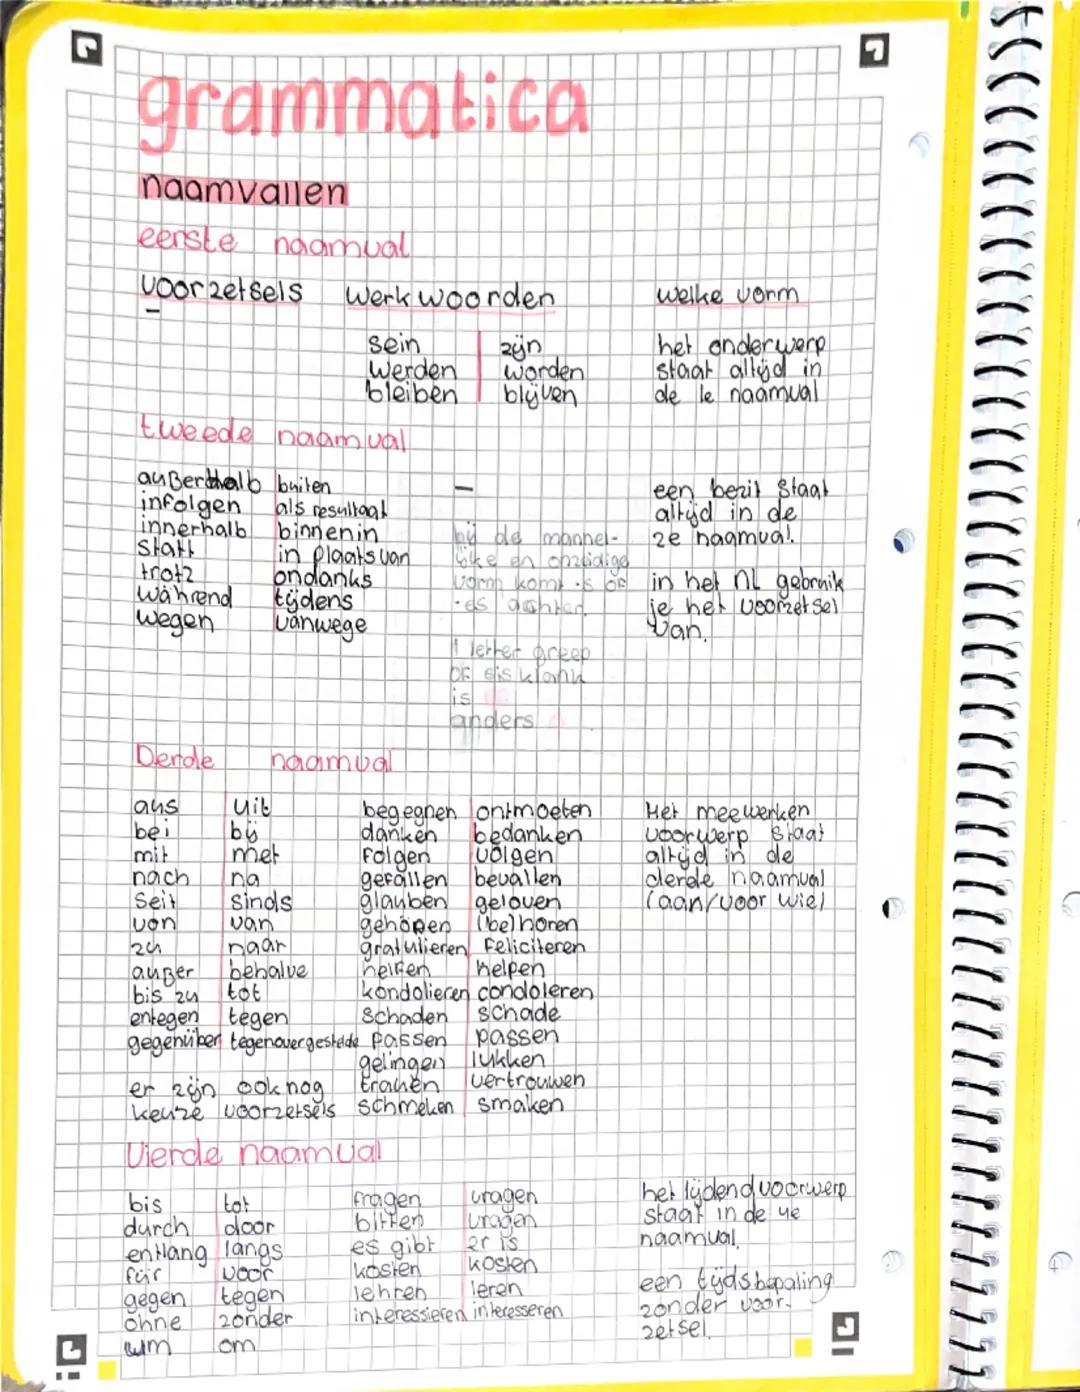 grammatica
naamvallen
eerste naamval
voorzetsels werkwoorden welke vorm
sein zijn het onderwerp
werden worden staat altijd in
bleiben blijven de 1e naamval
tweede naamval
außerhalb buiten – een bezit staat
infolgen als resultaat altijd in de
innerhalb binnenin bij de mannel- 2e naamval.
statt in plaats van ijke en onzijdige
trotz ondanks vorm komt -s of in het NL gebruik
während tijdens -es achter. je het voorzetsel
wegen vanwege van.
1 letter greep
of sis klank
is
anders
Derde naamval
aus uit begegnen ontmoeten Het meewerken
bei bij danken bedanken voorwerp staat
mit met folgen volgen altijd in de
nach na gefallen bevallen derde naamval
seit sinds glauben geloven (aan/voor wie)
von van gehören (be)horen
zu naar gratulieren feliciteren
außer behalve helfen helpen
bis zu tot kondolieren condoleren
entegen tegen schaden schade
gegenüber tegenovergestelde passen passen
gelingen lukken
er zijn ook nog trauen vertrouwen
keuze voorzetsels schmeken smaken
Vierde naamval
bis tot fragen vragen het lijdend voorwerp
durch door bitten vragen staat in de 4e
entlang langs es gibt er is naamval.
für voor kosten kosten
gegen tegen lehren leren een tijdsbepaling
ohne zonder interessieren interesseren zonder voor-
um om zetsel.